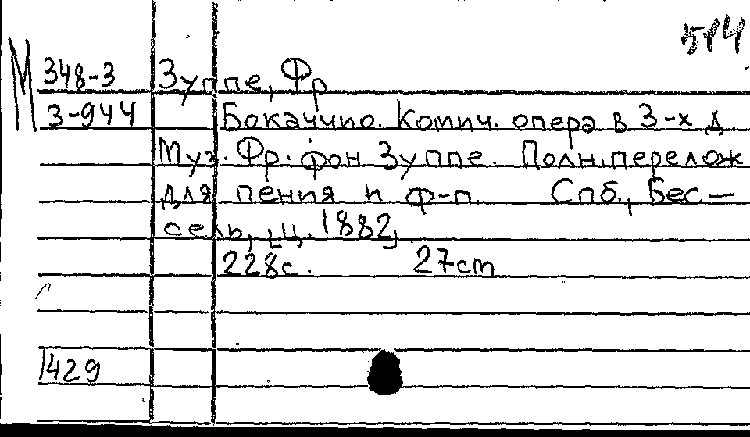 М 348-3 Зуппе, Фр
З-944 Бокаччио. Комич. опера в 3-х д
Муз. Фр. фон Зуппе. Полн. перелож
для пения и ф-п Спб., Бес-
сель, ц. 1882,
228с. 27cm
1429